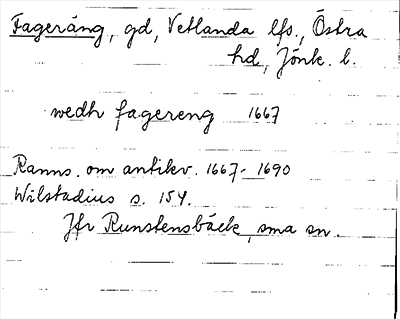 Fageräng, gd, Vetlanda lfs., Östra
hd, Jönk. l.
wedh fagereng 1667
Ranns. om antikv. 1667-1690
Wilstadius s. 154.
Jfr Runstensbäck, sma sn.